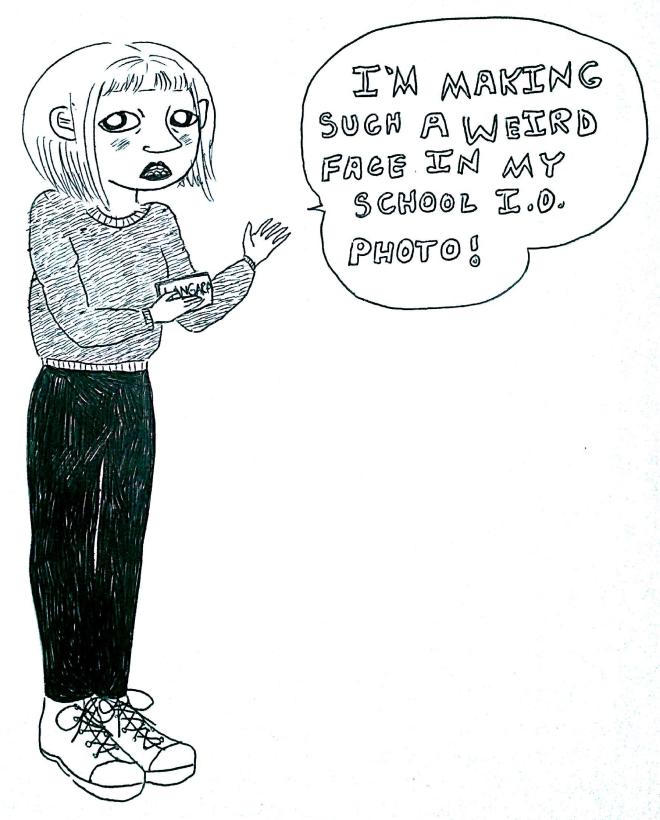 I'M MAKING
SUCH A WEIRD
FACE IN MY
SCHOOL I.D.
PHOTO!
LANGARA